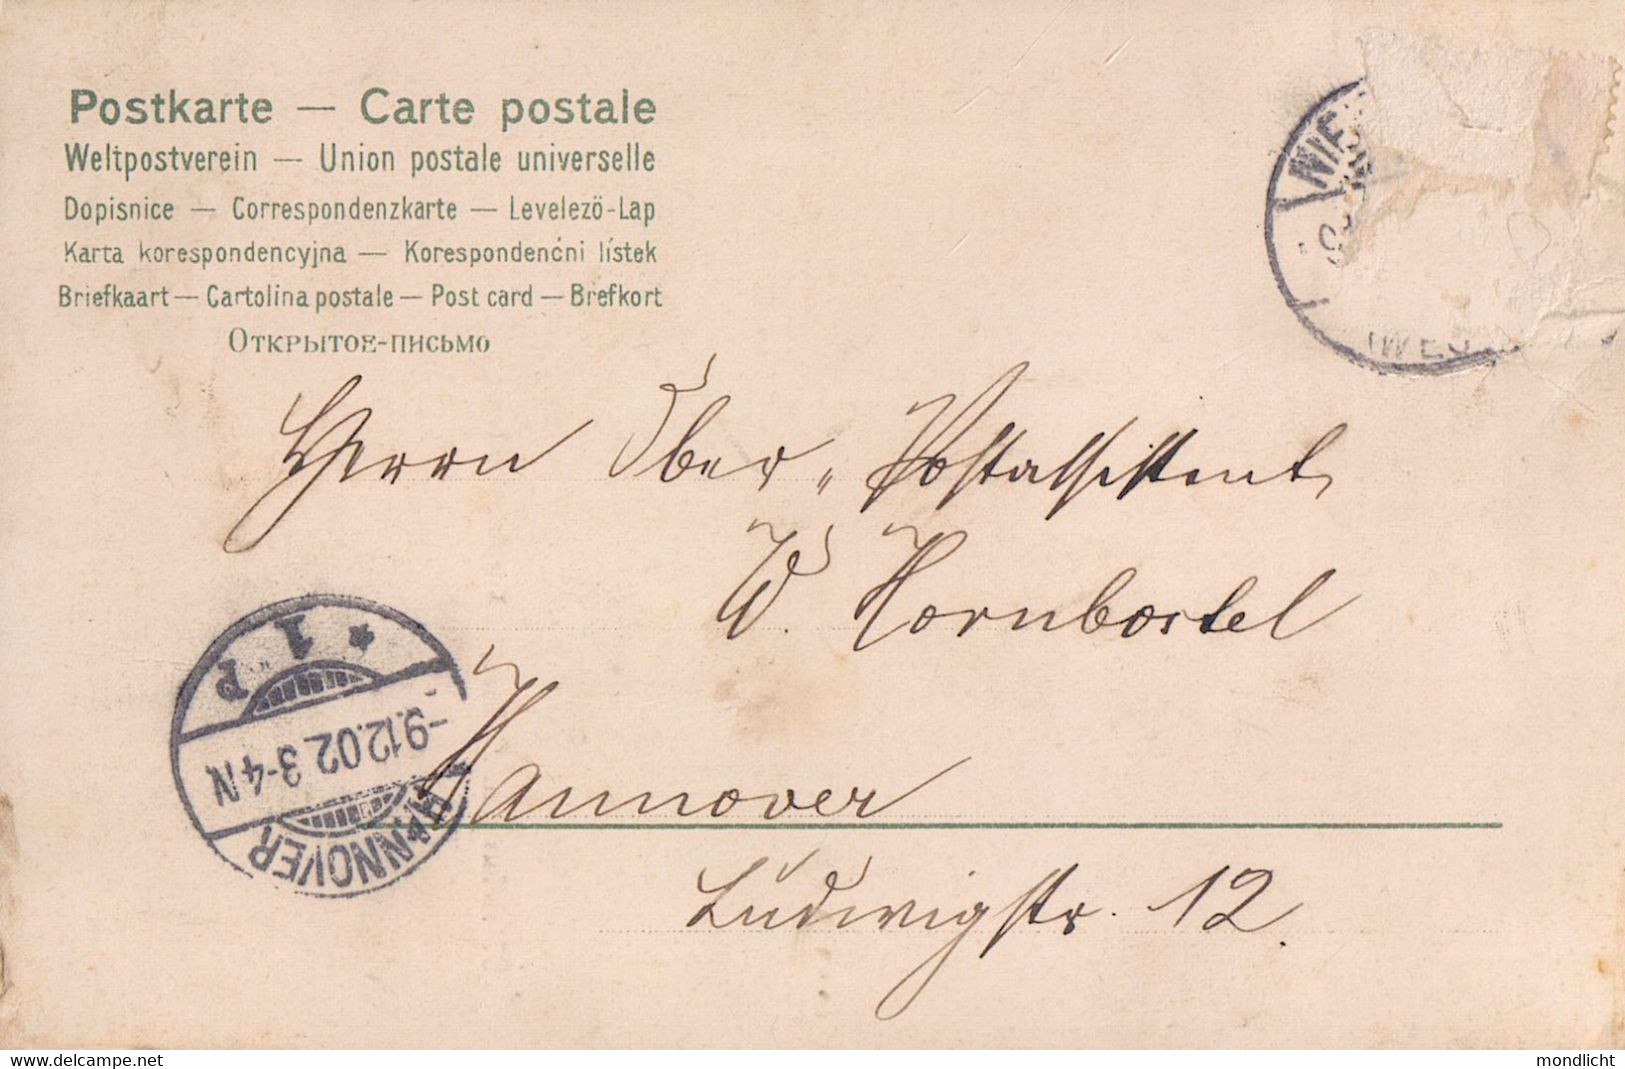 Postkarte — Carte postale
Weltpostverein — Union postale universelle
Dopisnice — Correspondenzkarte — Levelezö-Lap
Karta korespondencyjna — Korespondenćni lístek
Briefkaart — Cartolina postale — Post card — Brefkort
Открытое-письмо
NIE
(WES
Herrn Ober-Postassistent
W. Hornbostel
Hannover
Ludwigstr. 12.
HANNOVER
-9.12.02 3-4N
* 1 P
delcampe.net
mondlicht